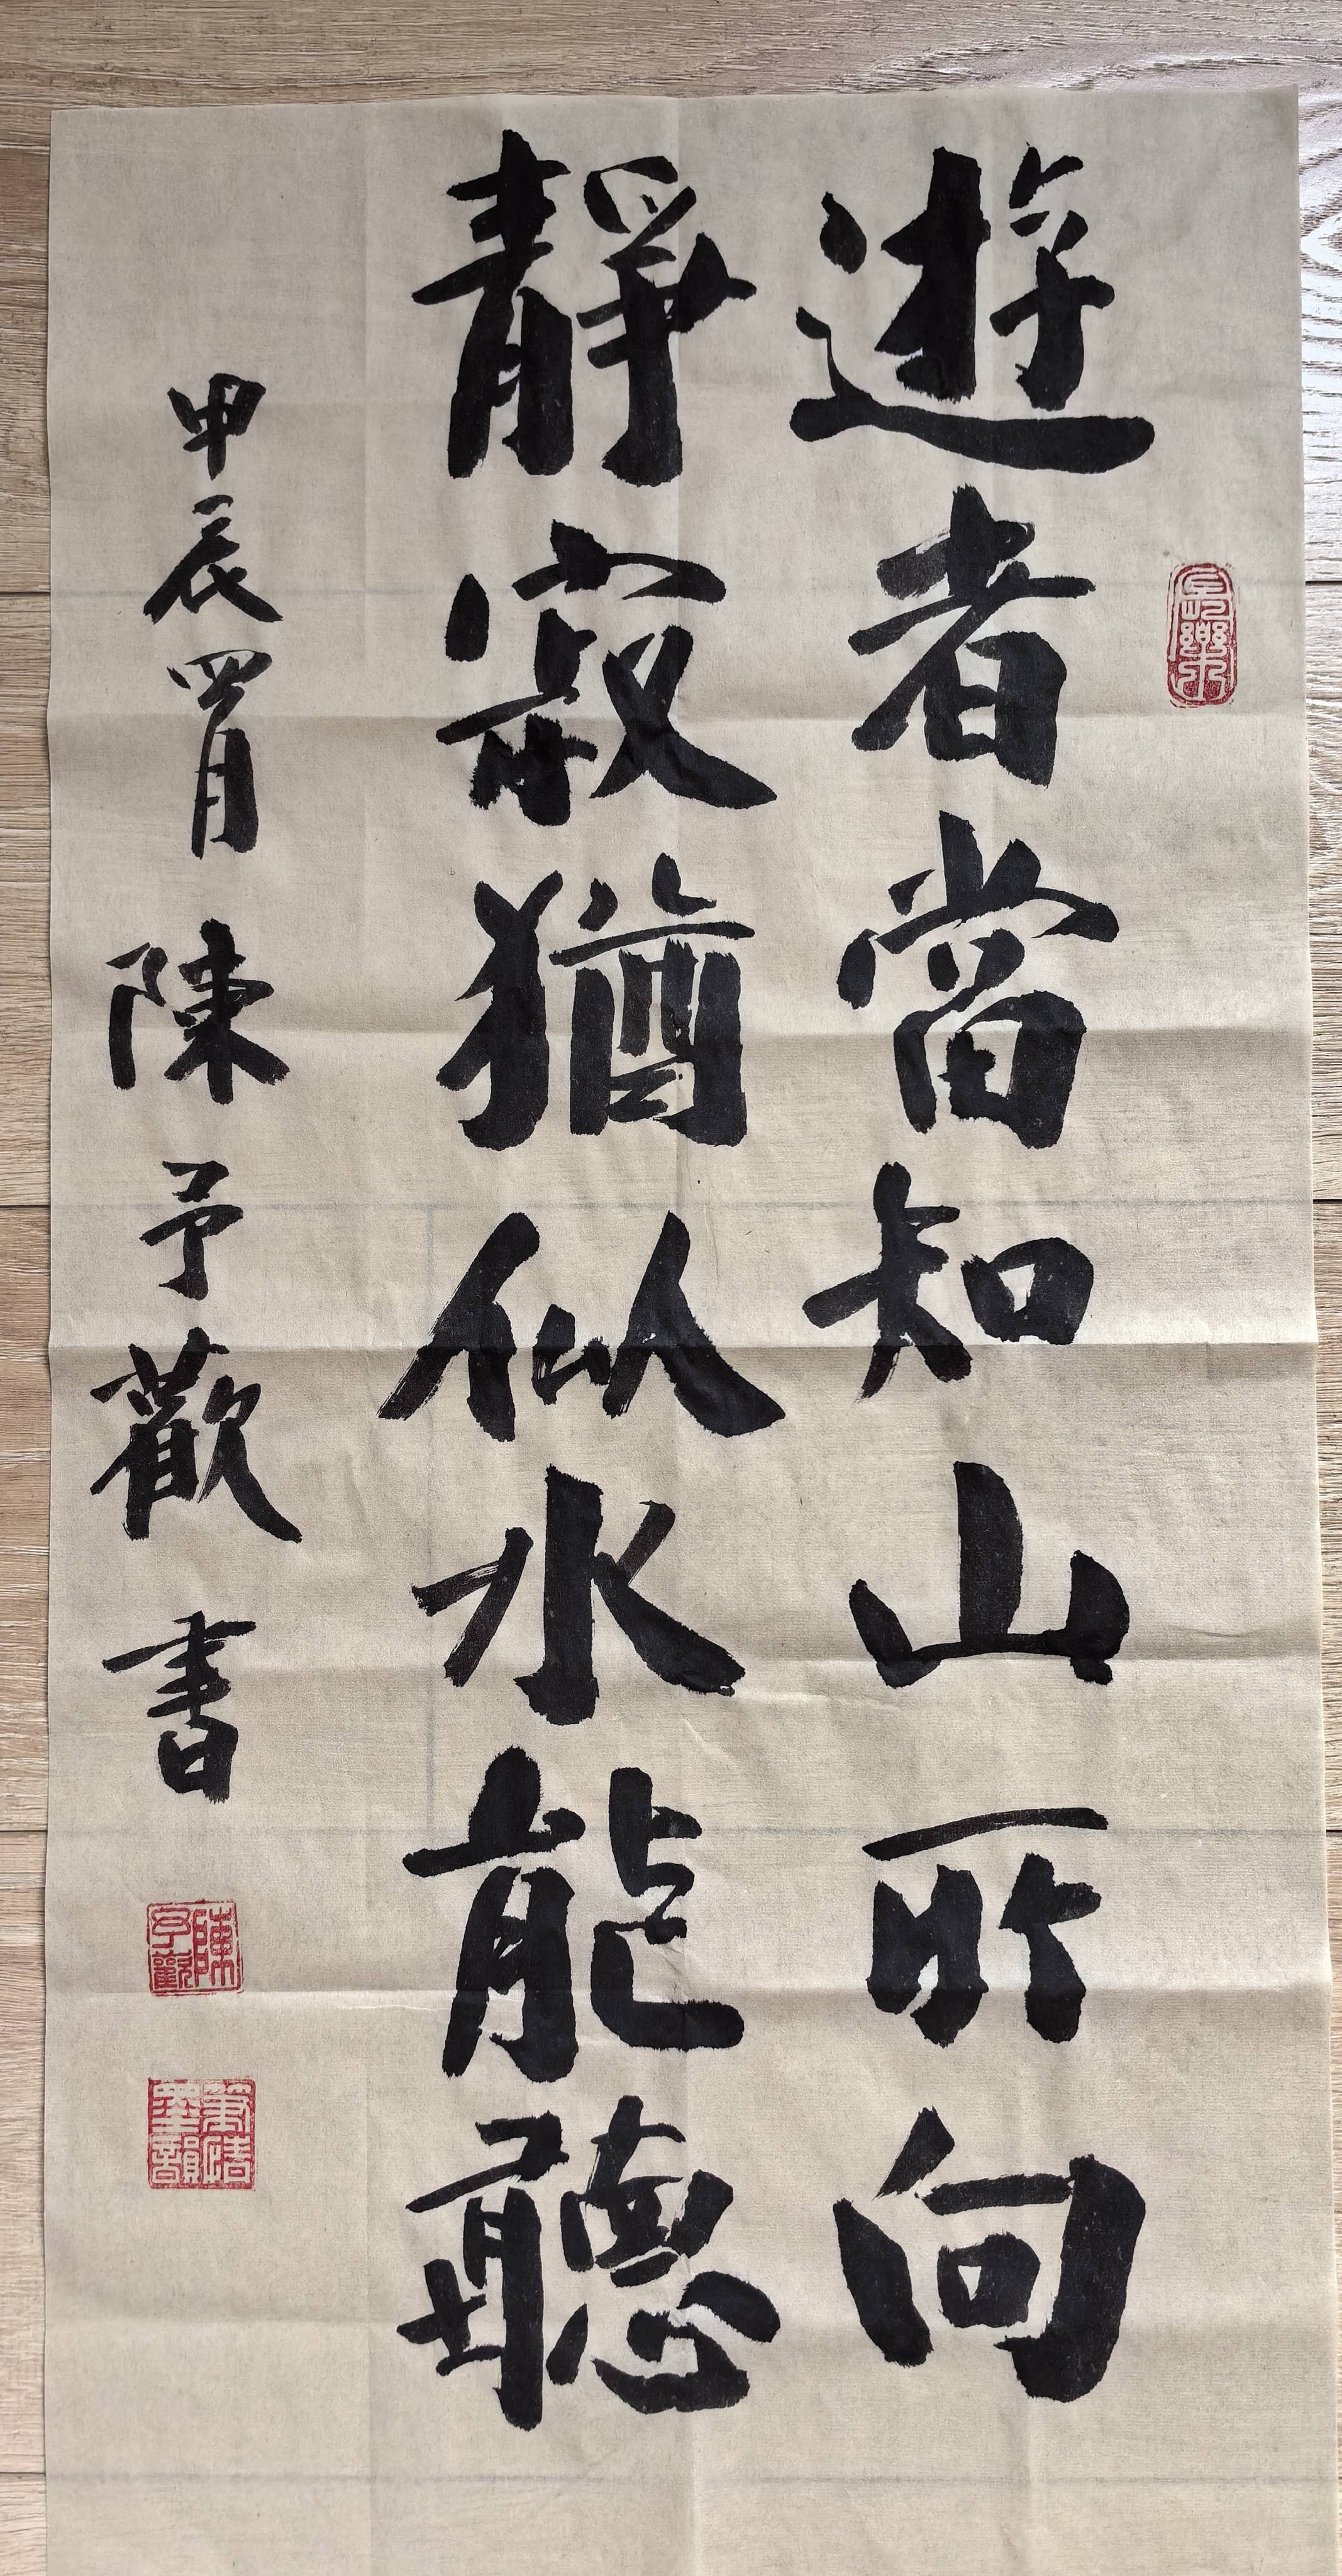 遊者當知山所向
靜寂猶似水能聽
甲辰四月 陳予歡 書
長樂
陳予歡